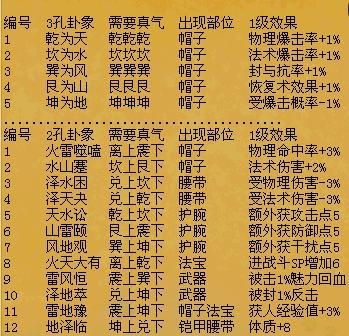 编号 3孔卦象 需要真气 出现部位 1级效果
1 乾为天 乾乾乾 帽子 物理爆击率+1%
2 坎为水 坎坎坎 帽子 法术爆击率+1%
3 巽为风 巽巽巽 帽子 封与抗率+1%
4 艮为山 艮艮艮 帽子 恢复术效果+1%
5 坤为地 坤坤坤 帽子 受爆击概率-1%
编号 2孔卦象 需要真气 出现部位 1级效果
1 火雷噬嗑 离上震下 帽子 物理命中率+3%
2 水山蹇 坎上艮下 帽子 法术伤害+2%
3 泽水困 兑上坎下 腰带 受物理伤害-3%
4 泽天夬 兑上乾下 腰带 受法术伤害-3%
5 天水讼 乾上坎下 护腕 额外获攻击点5
6 山雷颐 艮上震下 护腕 额外获防御点5
7 风地观 巽上坤下 护腕 额外获干扰点5
8 火天大有 离上乾下 法宝 进战斗SP增加6
9 雷风恒 震上巽下 武器 被击1%魅力回血
10 泽地萃 兑上坤下 武器 被封1%反击
11 雷地豫 震上坤下 帽子法宝 获人经验值+3%
12 地泽临 坤上兑下 铠甲腰带 体质+6